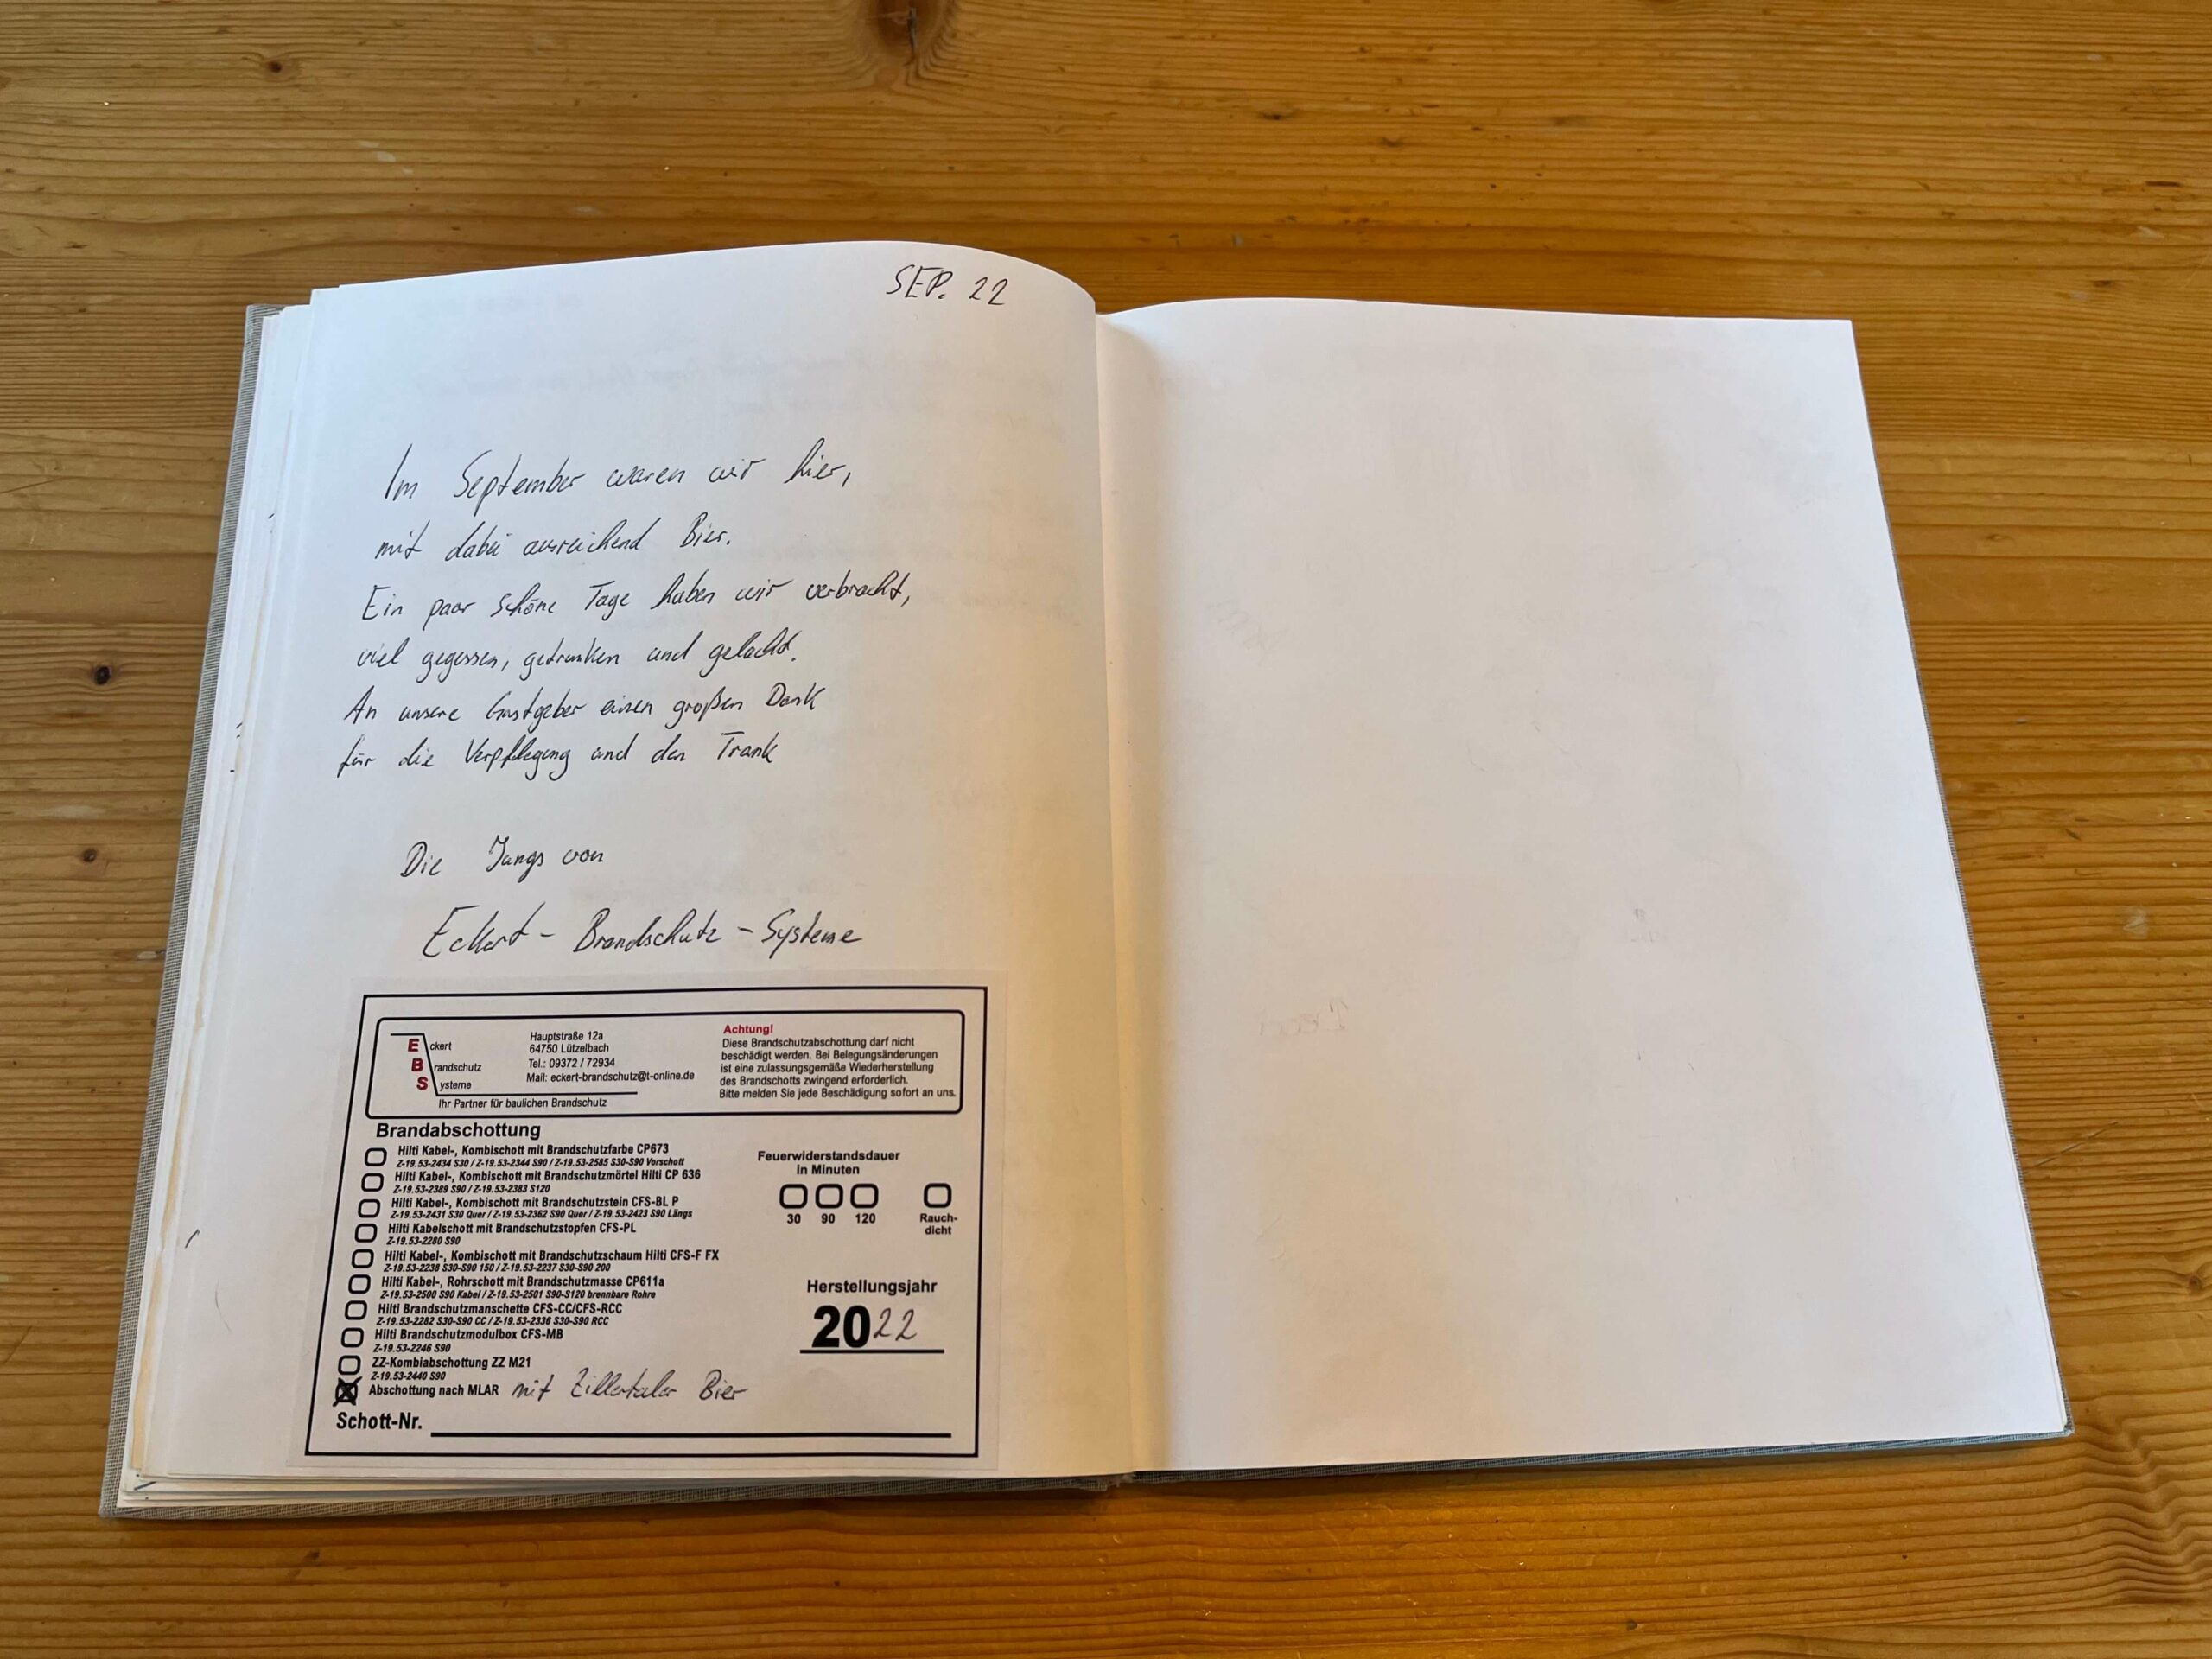 SEP. 22
Im September waren wir hier,
mit dabei ausreichend Bier.
Ein paar schöne Tage haben wir verbracht,
viel gegessen, getrunken und gelacht.
An unsere Gastgeber einen großen Dank
für die Verpflegung und den Trank
Die Jungs von
Eckert - Brandschutz - Systeme
Eckert
Brandschutz
Systeme
Ihr Partner für baulichen Brandschutz
Hauptstraße 12a
64750 Lützelbach
Tel.: 09372 / 72934
Mail: eckert-brandschutz@t-online.de
Achtung!
Diese Brandschutzabschottung darf nicht
beschädigt werden. Bei Belegungsänderungen
ist eine zulassungsgemäße Wiederherstellung
des Brandschotts zwingend erforderlich.
Bitte melden Sie jede Beschädigung sofort an uns.
Brandabschottung
Hilti Kabel-, Kombischott mit Brandschutzfarbe CP673
Z-19.53-2434 S30 / Z-19.53-2344 S90 / Z-19.53-2585 S30-S90 Vorschott
Hilti Kabel-, Kombischott mit Brandschutzmörtel Hilti CP 636
Z-19.53-2389 S90 / Z-19.53-2383 S120
Hilti Kabel-, Kombischott mit Brandschutzstein CFS-BL P
Z-19.53-2431 S30 Quer / Z-19.53-2362 S90 Quer / Z-19.53-2423 S90 Längs
Hilti Kabelschott mit Brandschutzstopfen CFS-PL
Z-19.53-2280 S90
Hilti Kabel-, Kombischott mit Brandschutzschaum Hilti CFS-F FX
Z-19.53-2238 S30-S90 150 / Z-19.53-2237 S30-S90 200
Hilti Kabel-, Rohrschott mit Brandschutzmasse CP611a
Z-19.53-2500 S90 Kabel / Z-19.53-2501 S90-S120 brennbare Rohre
Hilti Brandschutzmanschette CFS-CC/CFS-RCC
Z-19.53-2282 S30-S90 CC / Z-19.53-2336 S30-S90 RCC
Hilti Brandschutzmodulbox CFS-MB
Z-19.53-2246 S90
ZZ-Kombiabschottung ZZ M21
Z-19.53-2440 S90
Abschottung nach MLAR mit Zillertaler Bier
Schott-Nr.
Feuerwiderstandsdauer
in Minuten
30 90 120
Rauch-
dicht
Herstellungsjahr
2022